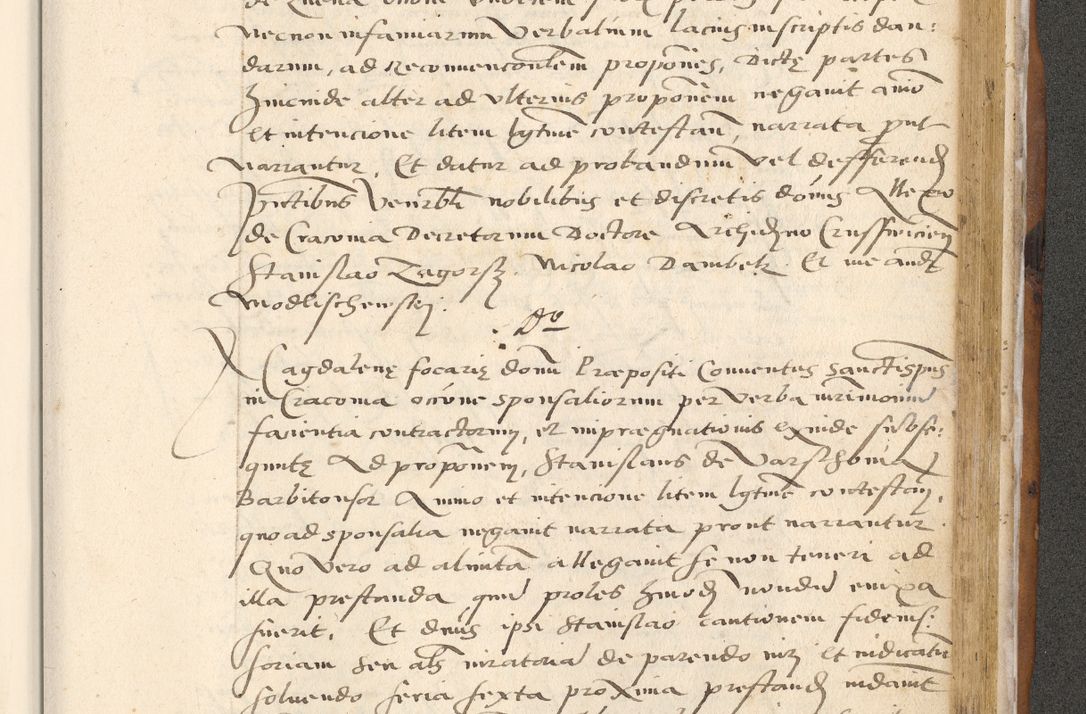 necnon infamiarum verbalium lacius in scriptis dan:
darum, ad Reconuencoalem propones, Dictę partes
hincinde alter ad vlterius proponem negauit aīo
et intencione litem lgtme contestan, narrata put
narrantur, Et datur ad probandum vel defferend
Pntibus Venrbli nobilibus et discretis dōnis Alexo
de Cracouia Decretorum Doctore Archidno Crusswicien
Stanislao Zegorsk. Nicolao Dambek Et me andr
Modlischewskj.
Do
Magdalenę focarię domi Præpositi Conuentus Sanctispus
in Cracouia occōne sponsaliorum per verba mrimonium
facientia contractorum, et impraegnationis exinde subse:
quutę Ad proponem, Stanislaus de Varschouia
Barbitonsor Animo et intencione litem lgtme contestan,
quo ad sponsalia negauit narrata prout narrantur
Quo vero ad alimta allegauit se non teneri ad
illa prestanda quū proles hmodj nondū enixa
fuerit, Et dnus ipsi Stanislao cautionem fideius:
soriam seu als iuratoriā de parendo iuri et iudicatū
soluendo feria sexta proxima prestandj mdauit